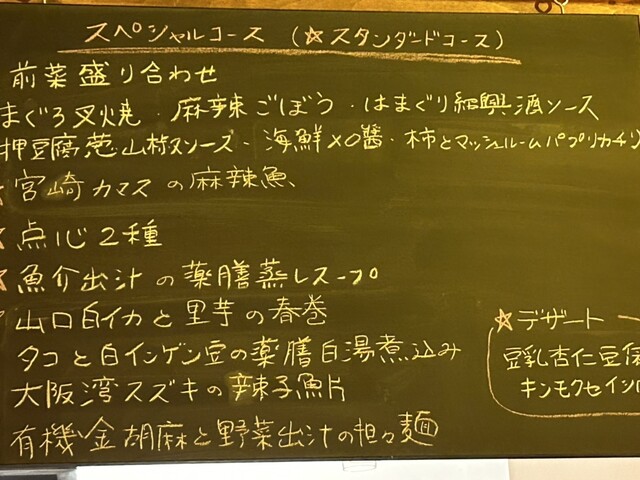 スペシャルコース (☆スタンダードコース)
前菜盛り合わせ
まぐろ叉焼・麻辣ごぼう・はまぐり紹興酒ソース
押豆腐葱山椒ソース・海鮮XO醬・柿とマッシュルームパプリカチリ
☆宮崎カマスの麻辣魚
☆点心2種
☆魚介出汁の薬膳蒸しスープ
山口白イカと里芋の春巻
タコと白インゲン豆の薬膳白湯煮込み
大阪湾スズキの辣子魚片
有機金胡麻と野菜出汁の担々麺
☆デザート
豆乳杏仁豆腐
キンモクセイシロ